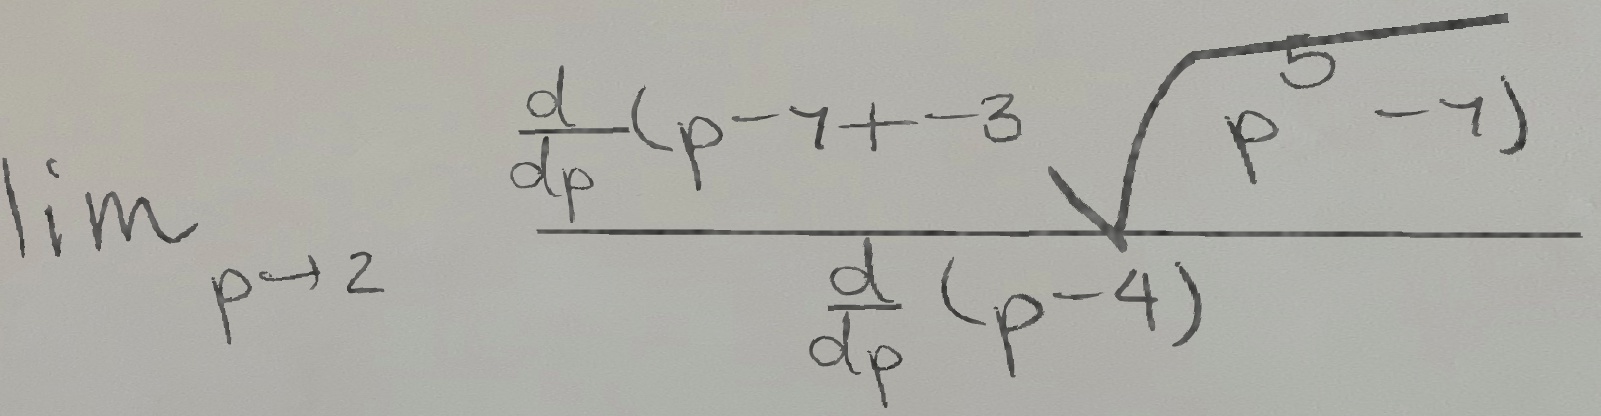 \lim_{p \to 2} \frac{\frac{d}{dp}(p - 7 + -3\sqrt{p^5 - 7})}{\frac{d}{dp}(p - 4)}